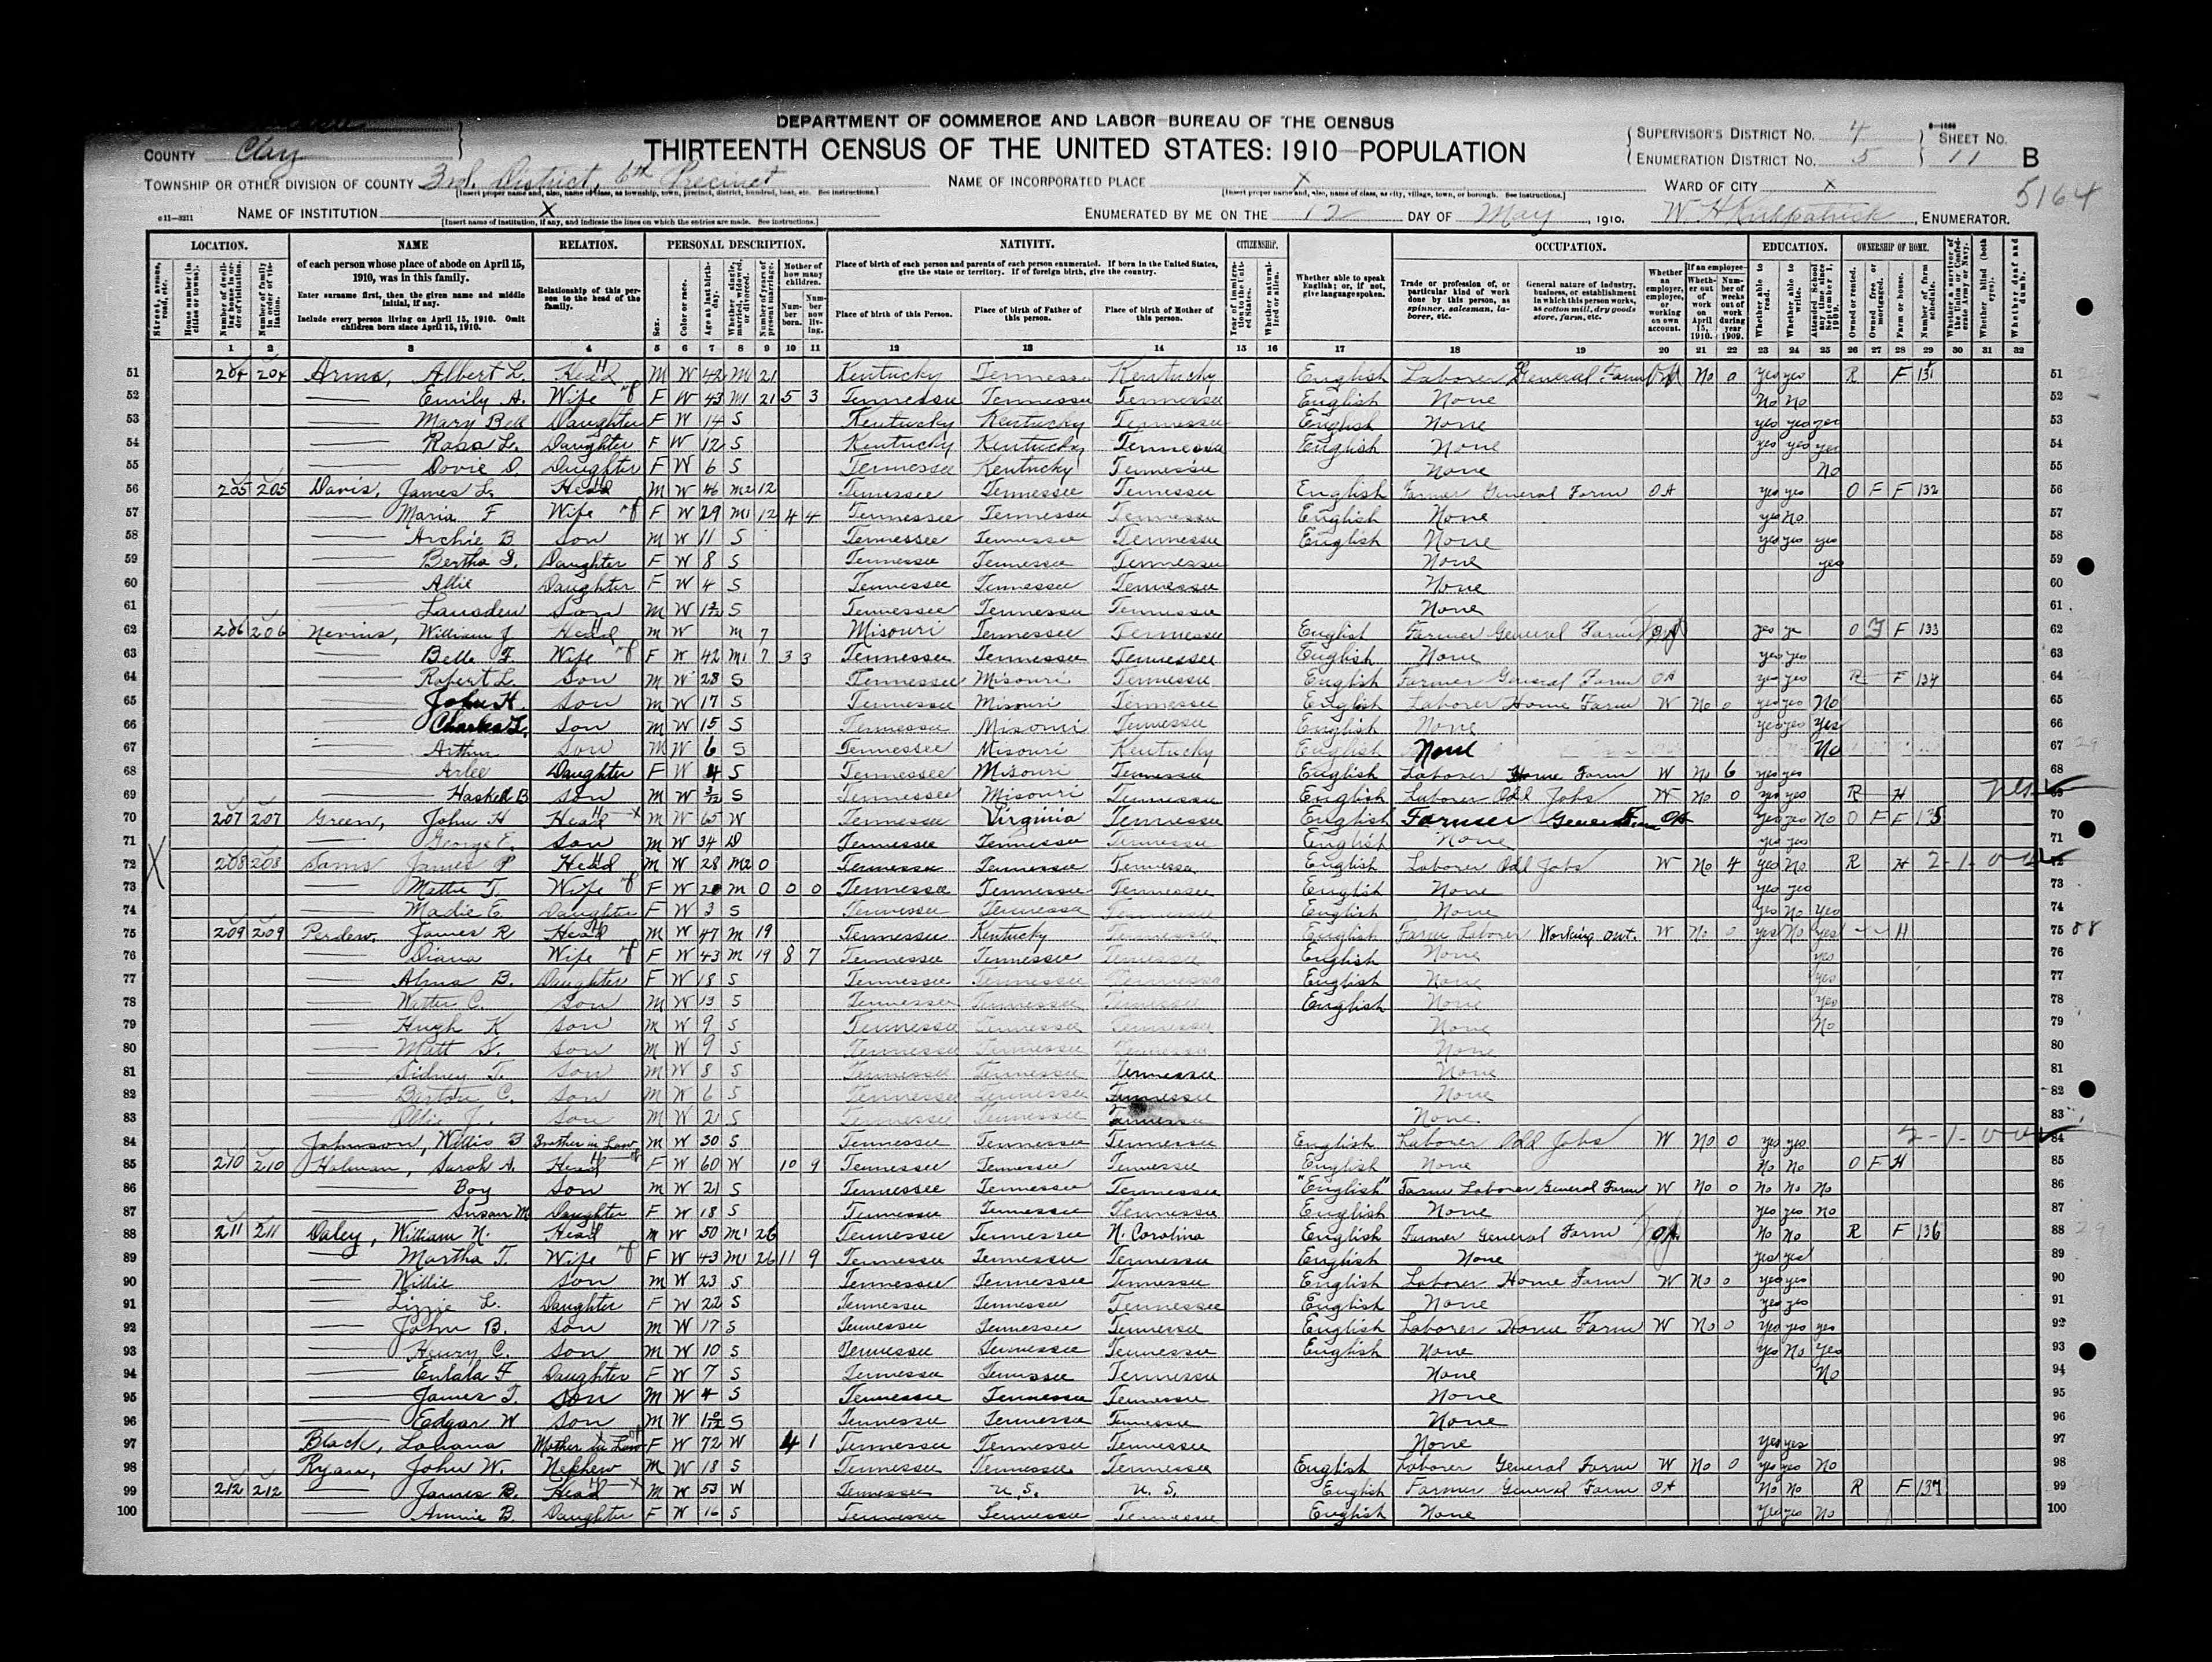 DEPARTMENT OF COMMERCE AND LABOR—BUREAU OF THE CENSUS
THIRTEENTH CENSUS OF THE UNITED STATES: 1910—POPULATION
COUNTY Clay
SUPERVISOR'S DISTRICT No. 4
ENUMERATION DISTRICT No. 5
SHEET No. 11 B
TOWNSHIP OR OTHER DIVISION OF COUNTY 3rd. District, 6th Precinct
NAME OF INCORPORATED PLACE X
WARD OF CITY X
5164
NAME OF INSTITUTION X
ENUMERATED BY ME ON THE 12 DAY OF May, 1910. W H Kirkpatrick, ENUMERATOR.
LOCATION. NAME RELATION. PERSONAL DESCRIPTION. NATIVITY. CITIZENSHIP. OCCUPATION. EDUCATION. OWNERSHIP OF HOME.
of each person whose place of abode on April 15, 1910, was in this family.
Enter surname first, then the given name and middle initial, if any.
Include every person living on April 15, 1910. Omit children born since April 15, 1910.
Relationship of this person to the head of the family.
Place of birth of each person and parents of each person enumerated. If born in the United States, give the state or territory. If of foreign birth, give the country.
Place of birth of this Person. Place of birth of Father of this person. Place of birth of Mother of this person.
Whether able to speak English; or, if not, give language spoken.
1 2 3 4 5 6 7 8 9 10 11 12 13 14 15 16 17 18 19 20 21 22 23 24 25 26 27 28 29 30 31 32
51 204 204 Albert L. Head M W 42 M 21 Kentucky Tennessee Kentucky English Laborer General Farm No 0 yes yes R F 131
52 Emily A. Wife F W 43 M1 21 5 3 Tennessee Tennessee Tennessee English None No No
53 Mary Bell Daughter F W 14 S Kentucky Kentucky Tennessee English None yes yes yes
54 Rosa L. Daughter F W 12 S Kentucky Kentucky Tennessee English None yes yes yes
55 Dovie D. Daughter F W 6 S Tennessee Kentucky Tennessee None No
56 205 205 Davis, James L. Head M W 46 M2 12 Tennessee Tennessee Tennessee English Farmer General Farm OA yes yes O F F 132
57 Maria F Wife F W 29 M1 12 4 4 Tennessee Tennessee Tennessee English None yes No
58 Archie B Son M W 11 S Tennessee Tennessee Tennessee English None yes yes yes
59 Bertha Daughter F W 8 S Tennessee Tennessee Tennessee None yes
60 Allie Daughter F W 4 S Tennessee Tennessee Tennessee None
61 Lansden Son M W S Tennessee Tennessee Tennessee None
62 206 206 Nevins, William J Head M W M 7 Misouri Tennessee Tennessee English Farmer General Farm yes ye O F F 133
63 Belle F. Wife F W 42 M1 7 3 3 Tennessee Tennessee Tennessee English None yes yes
64 Robert L. Son M W 28 S Tennessee Misouri Tennessee English Farmer General Farm OA yes yes R F 134
65 John H. Son M W 17 S Tennessee Misouri Tennessee English Laborer Home Farm W No 0 yes yes No
66 Charles Son M W 15 S Tennessee Misouri Tennessee English None yes yes Yes
67 Arthur Son M W 6 S Tennessee Misouri Kentucky English None No
68 Arlee Daughter F W 4 S Tennessee Misouri Tennessee English Laborer Home Farm W No 6 yes yes
69 Haskell B Son M W 3/12 S Tennessee Misouri Tennessee English Laborer Odd Jobs W No 0 yes yes R H
70 207 207 Green, John H Head M W 65 W Tennessee Virginia Tennessee English Farmer General Farm OA yes yes No O F F 135
71 George E. Son M W 34 D Tennessee Tennessee Tennessee English None yes yes
72 208 208 Sams James P Head M W 28 M2 0 Tennessee Tennessee Tennessee English Laborer Odd Jobs W No 4 yes No R H
73 Mattie T. Wife F W 20 M 0 0 0 Tennessee Tennessee Tennessee English None yes yes
74 Madie E. Daughter F W 3 S Tennessee Tennessee Tennessee English None yes No Yes
75 209 209 Perdew, James R Head M W 47 M 19 Tennessee Kentucky Tennessee English Farm Laborer Working out. W No 0 yes No yes H
76 Diana Wife F W 43 M 19 8 7 Tennessee Tennessee Tennessee English None yes
77 Alma B. Daughter F W 18 S Tennessee Tennessee Tennessee English None yes
78 Walter C. Son M W 13 S Tennessee Tennessee Tennessee English None yes
79 Hugh K Son M W 9 S Tennessee Tennessee Tennessee None No
80 Matt Son M W 9 S Tennessee Tennessee Tennessee None
81 Sidney T. Son M W 8 S Tennessee Tennessee Tennessee None
82 Burton C. Son M W 6 S Tennessee Tennessee Tennessee None
83 Ollie J. Son M W S Tennessee Tennessee Tennessee None.
84 Johnson, Willis B Brother in Law M W 30 S Tennessee Tennessee Tennessee English Laborer Odd Jobs W No 0 yes yes
85 210 210 Holman, Sarah A. Head F W 60 W 10 9 Tennessee Tennessee Tennessee English None No No O F H
86 Boy Son M W 21 S Tennessee Tennessee Tennessee "English" Farm Laborer General Farm W No 0 No No No
87 Susan M Daughter F W 18 S Tennessee Tennessee Tennessee English None yes yes No
88 211 211 Daley, William N. Head M W 50 M1 26 Tennessee Tennessee N. Carolina English Farmer General Farm No No R F 136
89 Martha T. Wife F W 43 M1 26 11 9 Tennessee Tennessee Tennessee English None yes yes
90 Willie Son M W 23 S Tennessee Tennessee Tennessee English Laborer Home Farm W No 0 yes yes
91 Lizzie L. Daughter F W 22 S Tennessee Tennessee Tennessee English None yes yes
92 John B. Son M W 17 S Tennessee Tennessee Tennessee English Laborer Home Farm W No 0 yes yes yes
93 Henry C. Son M W 10 S Tennessee Tennessee Tennessee English None yes No Yes
94 Eulala F Daughter F W 7 S Tennessee Tennessee Tennessee None No
95 James T. Son M W 4 S Tennessee Tennessee Tennessee None
96 Eadgar W Son M W S Tennessee Tennessee Tennessee None
97 Black, Louana Mother in Law F W 72 W 4 1 Tennessee Tennessee Tennessee None yes yes
98 Ryan, John W. Nephew M W 18 S Tennessee Tennessee Tennessee English Laborer General Farm W No 0 yes yes No
99 212 212 James B. Head M W 53 W Tennessee U.S. U.S. English Farmer General Farm OA No No R F 137
100 Annie B. Daughter F W 16 S Tennessee Tennessee Tennessee English None yes yes No